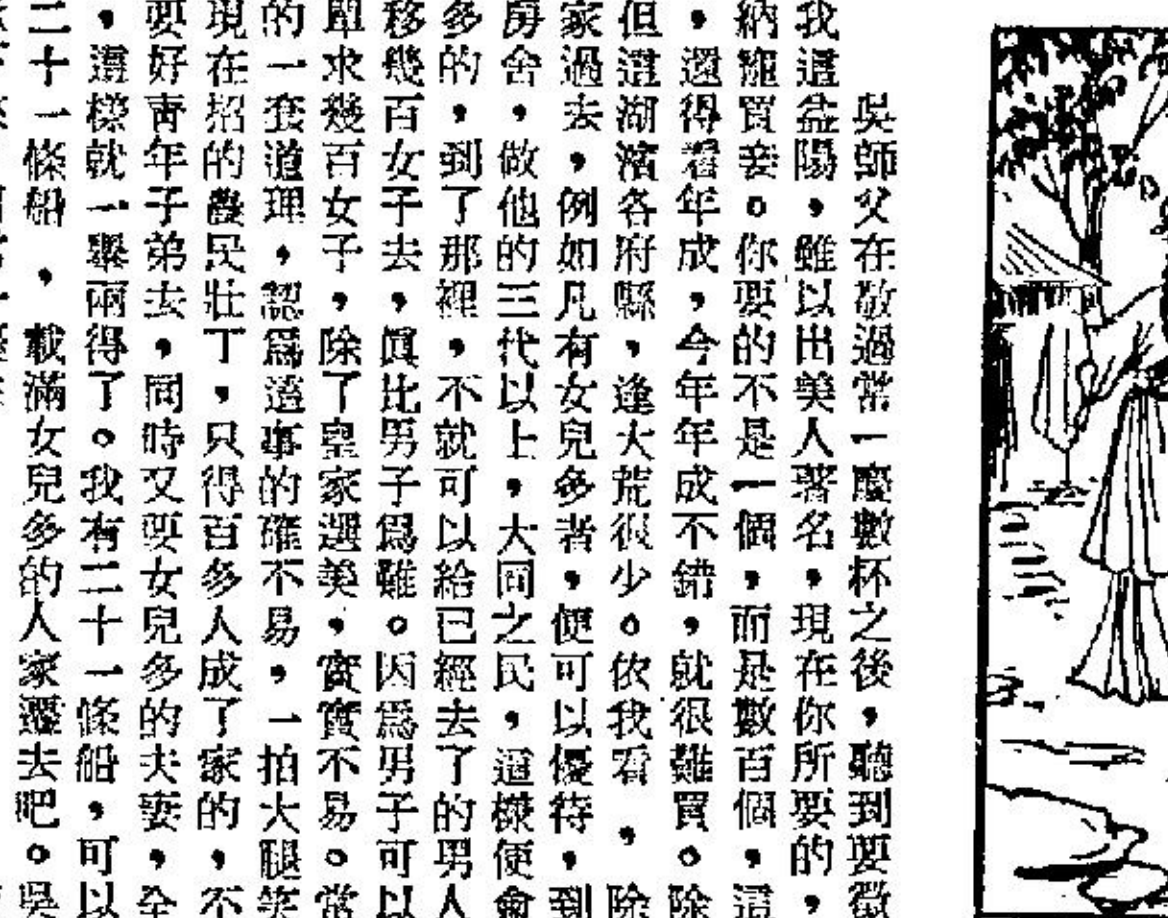 吳師父在敬過常一慶數杯之後，聽到要徵
我這益陽，雖以出美人著名，現在你所要的，
納寵買妾。你要的不是一個，而是數百個，這
，還得看年成，今年年成不錯，就很難買。除
但這湖濱各府縣，逢大荒很少。依我看，除
家過去，例如凡有女兒多者，便可以優待，到
房舍，做他的三代以上，大同之民，這樣便會
多的，到了那裡，不就可以給已經去了的男人
移幾百女子去，眞比男子爲難。因爲男子可以
單求幾百女子，除了皇家選美，實實不易。常
的一套道理，認爲這事的確不易，一拍大腿笑
現在招的農民壯丁，只得百多人成了家的，不
要好青年子弟去，同時又要女兒多的夫妻，全
，這樣就一舉兩得了。我有二十一條船，可以
二十一條船，載滿女兒多的人家遷去吧。吳